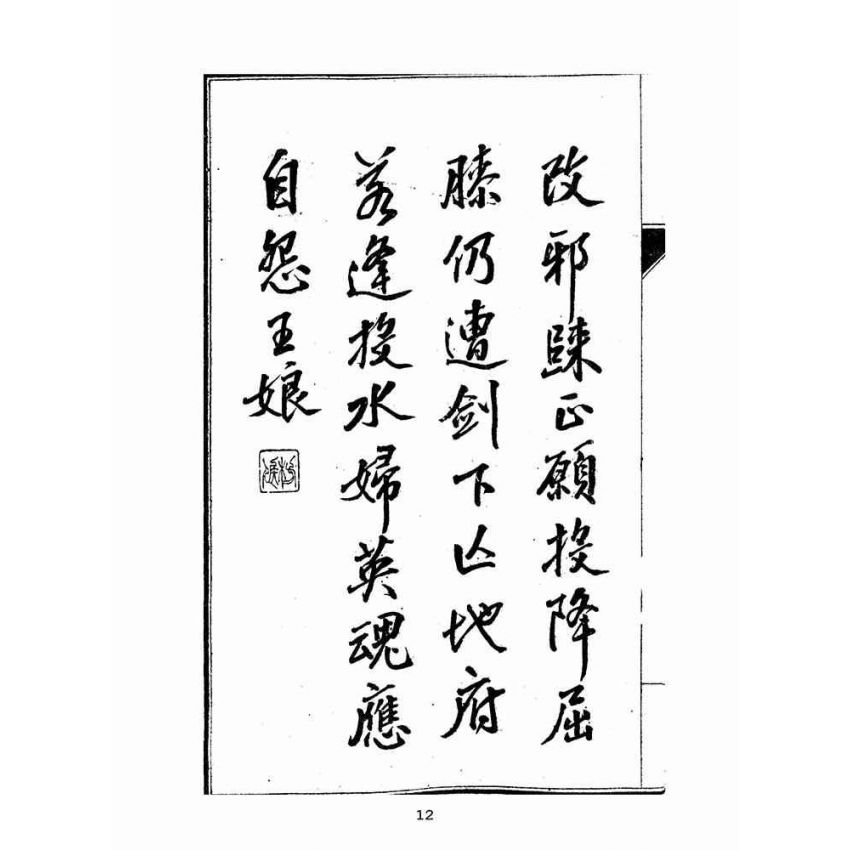 改邪歸正願投降屈
膝仍遭劍下亾地府
若逢投水婦英魂應
自怨王娘
12